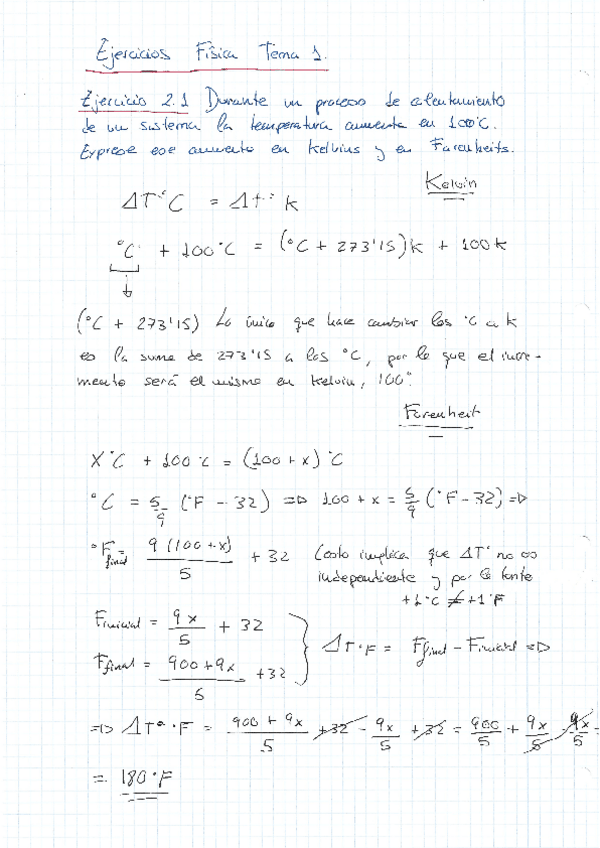 Ejercicios Física Tema 1.
Ejercicio 2.1 Durante un proceso de calentamiento
de un sistema la temperatura aumenta en 100°C.
Exprese ese aumento en Kelvins y en Farenheits.
Kelvin
ΔT°C = Δt° k
°C + 100°C = (°C + 273'15)k + 100k
(°C + 273'15) Lo único que hace cambiar los °C a k
es la suma de 273'15 a los °C, por lo que el incre-
mento será el mismo en kelvin, 100°.
Farenheit
X°C + 100°C = (100 + x)°C
°C = 5/9 (°F - 32) => 100 + x = 5/9 (°F - 32) =>
°F final = 9(100 + x)/5 + 32 (esto implica que ΔT° no es
independiente y por lo tanto
+1°C ≠ +1°F
Finicial = 9x/5 + 32
Ffinal = 900 + 9x/5 + 32
ΔT°F = Ffinal - Finicial =>
=> ΔT°°F = 900 + 9x/5 + 32 - 9x/5 + 32 = 900/5 + 9x/5 - 9x/5 =
= 180°F